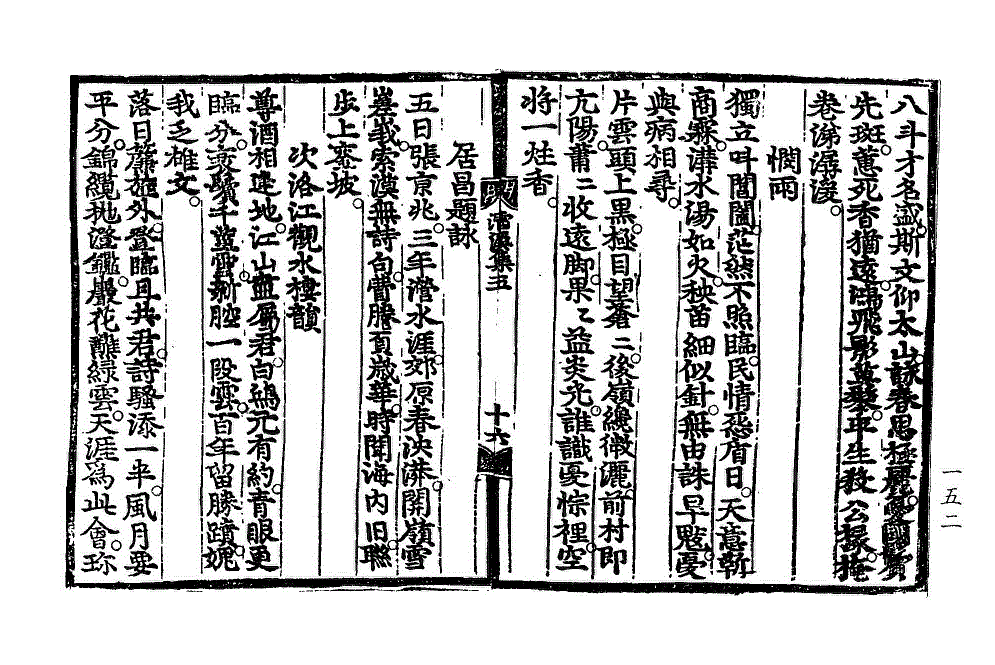 八斗才名盛斯文仰太山詠春思極
先斑蕙死香猶遠鴻飛影平生數公掾掩
卷涕潺湲
憫雨
獨立叫閶闔茫然不照臨民情怨眉日天意斬
商霖灌水湯如火秧苗細似針無由誅旱魃憂
與病相尋
片雲頭上黑極目望蒼〻後嶺纔微灑前村即
亢陽肅〻收遠脚果〻益炎光誰識憂悰裡空
將一炷香
濳溪集五
十六
居昌題詠
五日張京兆三年瀯水涯郊原春泱漭關嶺雪
嵳峩索漠無詩句霄騰頁歲華時聞海內旧聯
步上鑾坡
次洛江觀水樓韻
尊酒相逢地江山盡屬君白鷗元有約青眼更
臨分千新腔一段雲百年留勝蹟媿
我乏雄文
落日簾旌外登臨且共君詩騷添一半風月要
平分錦纜拋澄鑑巖花蘸綠雲天涯爲此會珎
一五二